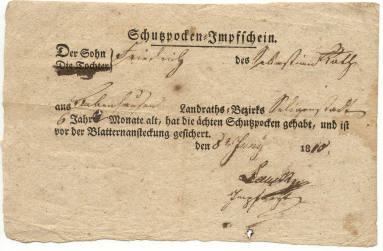 Schutzpocken-Impfschein.
Der Sohn Friedrich des Sebastian
Die Tochter
aus Landraths-Bezirks Seligenstadt
6 Jahre Monate alt, hat die ächten Schutzpocken gehabt, und ist
vor der Blatternansteckung gesichert.
den 8t Juny 1810.
Impfarzt